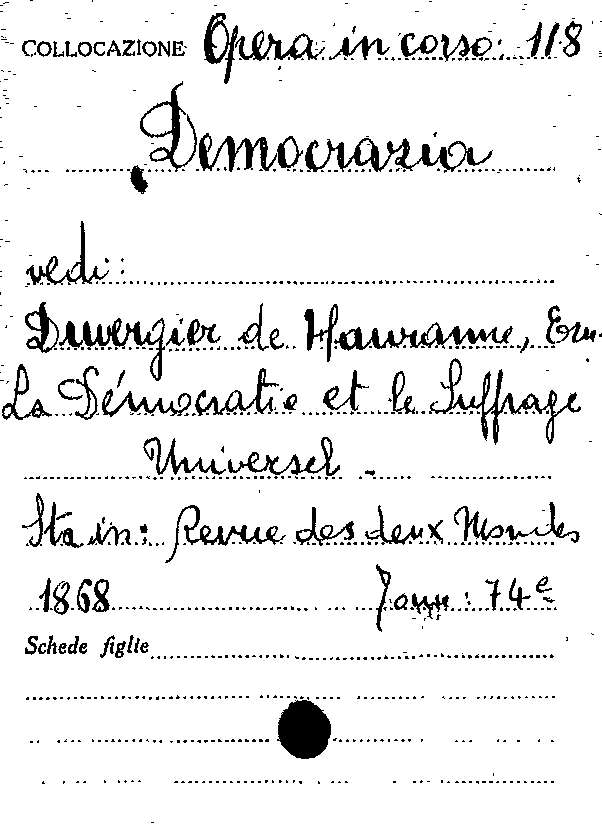 COLLOCAZIONE Opera in corso: 118
Democrazia
vedi:
Duvergier de Hauranne, Ern.
La Démocratie et le Suffrage
Universel -
Sta in: Revue des deux Mondes
1868 : 74e
Schede figlie